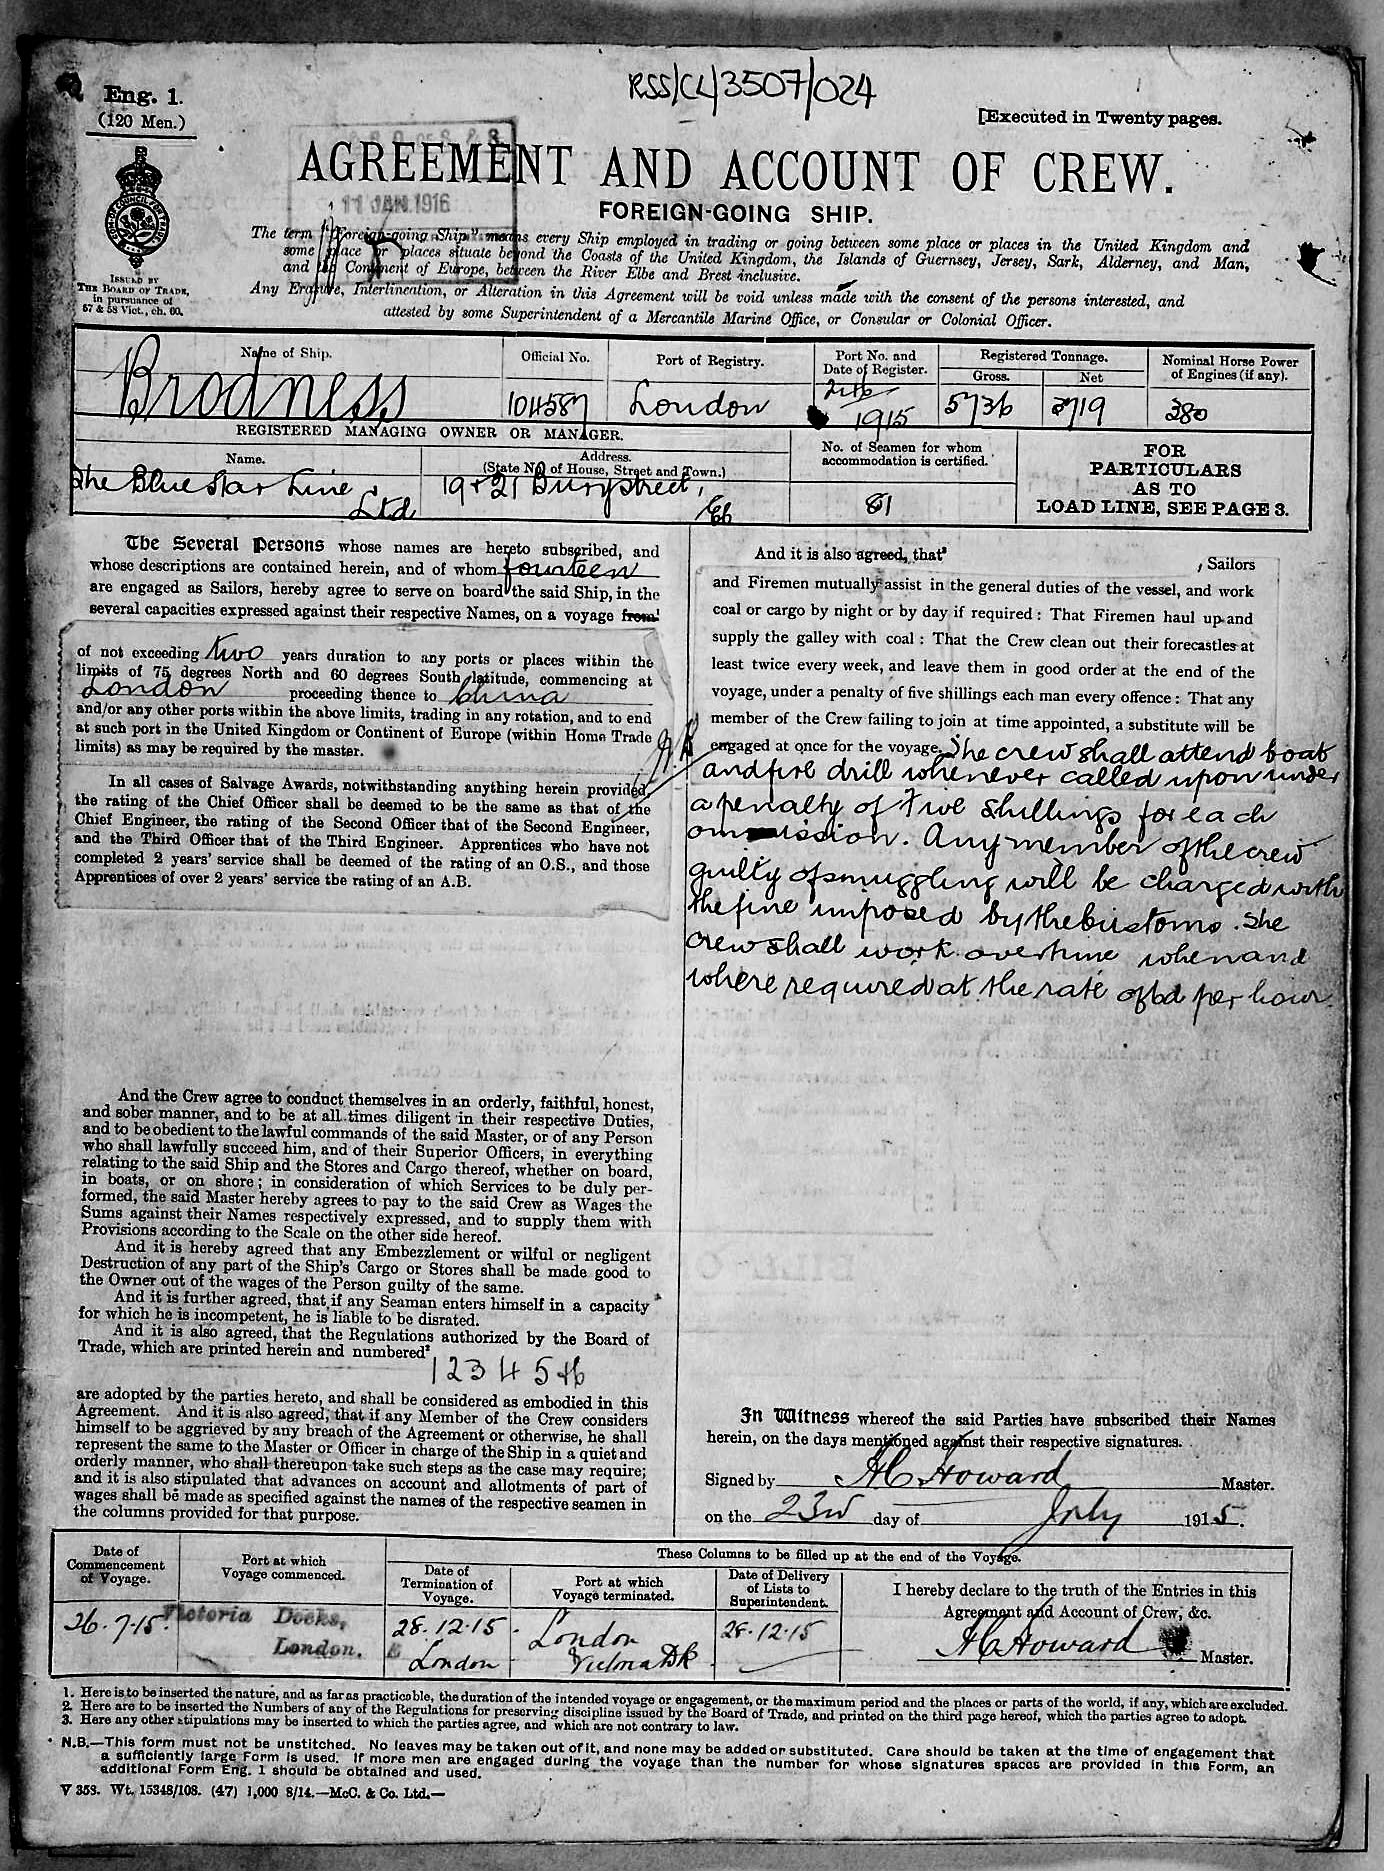 RSS/CL/3507/024
Eng. 1.
(120 Men.)
[Executed in Twenty pages.
AGREEMENT AND ACCOUNT OF CREW.
11 JAN 1916
FOREIGN-GOING SHIP.
ISSUED BY
THE BOARD OF TRADE,
in pursuance of
57 & 58 Vict., ch. 60.
The term "Foreign-going Ship" means every Ship employed in trading or going between some place or places in the United Kingdom and
some place or places situate beyond the Coasts of the United Kingdom, the Islands of Guernsey, Jersey, Sark, Alderney, and Man,
and the Continent of Europe, between the River Elbe and Brest inclusive.
Any Erasure, Interlineation, or Alteration in this Agreement will be void unless made with the consent of the persons interested, and
attested by some Superintendent of a Mercantile Marine Office, or Consular or Colonial Officer.
Name of Ship. Official No. Port of Registry. Port No. and Date of Register. Registered Tonnage. Gross. Net Nominal Horse Power of Engines (if any).
Brodness 104587 London 246/1915 5736 3719 380
REGISTERED MANAGING OWNER OR MANAGER.
Name. Address.
(State No. of House, Street and Town.)
No. of Seamen for whom
accommodation is certified.
FOR
PARTICULARS
AS TO
LOAD LINE, SEE PAGE 3.
The Blue Star Line Ltd 19 & 21 Bury Street, EC 61
The Several Persons whose names are hereto subscribed, and
whose descriptions are contained herein, and of whom fourteen
are engaged as Sailors, hereby agree to serve on board the said Ship, in the
several capacities expressed against their respective Names, on a voyage from¹
of not exceeding two years duration to any ports or places within the
limits of 75 degrees North and 60 degrees South latitude, commencing at
London proceeding thence to China
and/or any other ports within the above limits, trading in any rotation, and to end
at such port in the United Kingdom or Continent of Europe (within Home Trade
limits) as may be required by the master.
In all cases of Salvage Awards, notwithstanding anything herein provided,
the rating of the Chief Officer shall be deemed to be the same as that of the
Chief Engineer, the rating of the Second Officer that of the Second Engineer,
and the Third Officer that of the Third Engineer. Apprentices who have not
completed 2 years' service shall be deemed of the rating of an O.S., and those
Apprentices of over 2 years' service the rating of an A.B.
And the Crew agree to conduct themselves in an orderly, faithful, honest,
and sober manner, and to be at all times diligent in their respective Duties,
and to be obedient to the lawful commands of the said Master, or of any Person
who shall lawfully succeed him, and of their Superior Officers, in everything
relating to the said Ship and the Stores and Cargo thereof, whether on board,
in boats, or on shore; in consideration of which Services to be duly per-
formed, the said Master hereby agrees to pay to the said Crew as Wages the
Sums against their Names respectively expressed, and to supply them with
Provisions according to the Scale on the other side hereof.
And it is hereby agreed that any Embezzlement or wilful or negligent
Destruction of any part of the Ship's Cargo or Stores shall be made good to
the Owner out of the wages of the Person guilty of the same.
And it is further agreed, that if any Seaman enters himself in a capacity
for which he is incompetent, he is liable to be disrated.
And it is also agreed, that the Regulations authorized by the Board of
Trade, which are printed herein and numbered²
1 2 3 4 5 & 6
are adopted by the parties hereto, and shall be considered as embodied in this
Agreement. And it is also agreed, that if any Member of the Crew considers
himself to be aggrieved by any breach of the Agreement or otherwise, he shall
represent the same to the Master or Officer in charge of the Ship in a quiet and
orderly manner, who shall thereupon take such steps as the case may require;
and it is also stipulated that advances on account and allotments of part of
wages shall be made as specified against the names of the respective seamen in
the columns provided for that purpose.
And it is also agreed, that³
, Sailors
and Firemen mutually assist in the general duties of the vessel, and work
coal or cargo by night or by day if required: That Firemen haul up and
supply the galley with coal: That the Crew clean out their forecastles at
least twice every week, and leave them in good order at the end of the
voyage, under a penalty of five shillings each man every offence: That any
member of the Crew failing to join at time appointed, a substitute will be
engaged at once for the voyage. The crew shall attend boat
and fire drill whenever called upon under
a penalty of Five shillings for each
ommission. Any member of the crew
guilty of smuggling will be charged with
the fine imposed by the customs. The
crew shall work overtime when and
where required at the rate of 6d per hour
In Witness whereof the said Parties have subscribed their Names
herein, on the days mentioned against their respective signatures.
Signed by H C Howard Master.
on the 23rd day of July 1915.
Date of
Commencement
of Voyage.
Port at which
Voyage commenced.
These Columns to be filled up at the end of the Voyage.
Date of
Termination of
Voyage.
Port at which
Voyage terminated.
Date of Delivery
of Lists to
Superintendent.
I hereby declare to the truth of the Entries in this
Agreement and Account of Crew, &c.
26.7.15. Victoria Docks, London. 28.12.15 London London Victoria Dk 28.12.15
H C Howard Master.
1. Here is to be inserted the nature, and as far as practicable, the duration of the intended voyage or engagement, or the maximum period and the places or parts of the world, if any, which are excluded.
2. Here are to be inserted the Numbers of any of the Regulations for preserving discipline issued by the Board of Trade, and printed on the third page hereof, which the parties agree to adopt.
3. Here any other stipulations may be inserted to which the parties agree, and which are not contrary to law.
N.B.—This form must not be unstitched. No leaves may be taken out of it, and none may be added or substituted. Care should be taken at the time of engagement that
a sufficiently large Form is used. If more men are engaged during the voyage than the number for whose signatures spaces are provided in this Form, an
additional Form Eng. 1 should be obtained and used.
V 353. Wt. 15348/108. (47) 1,000 8/14.—McC. & Co. Ltd.—